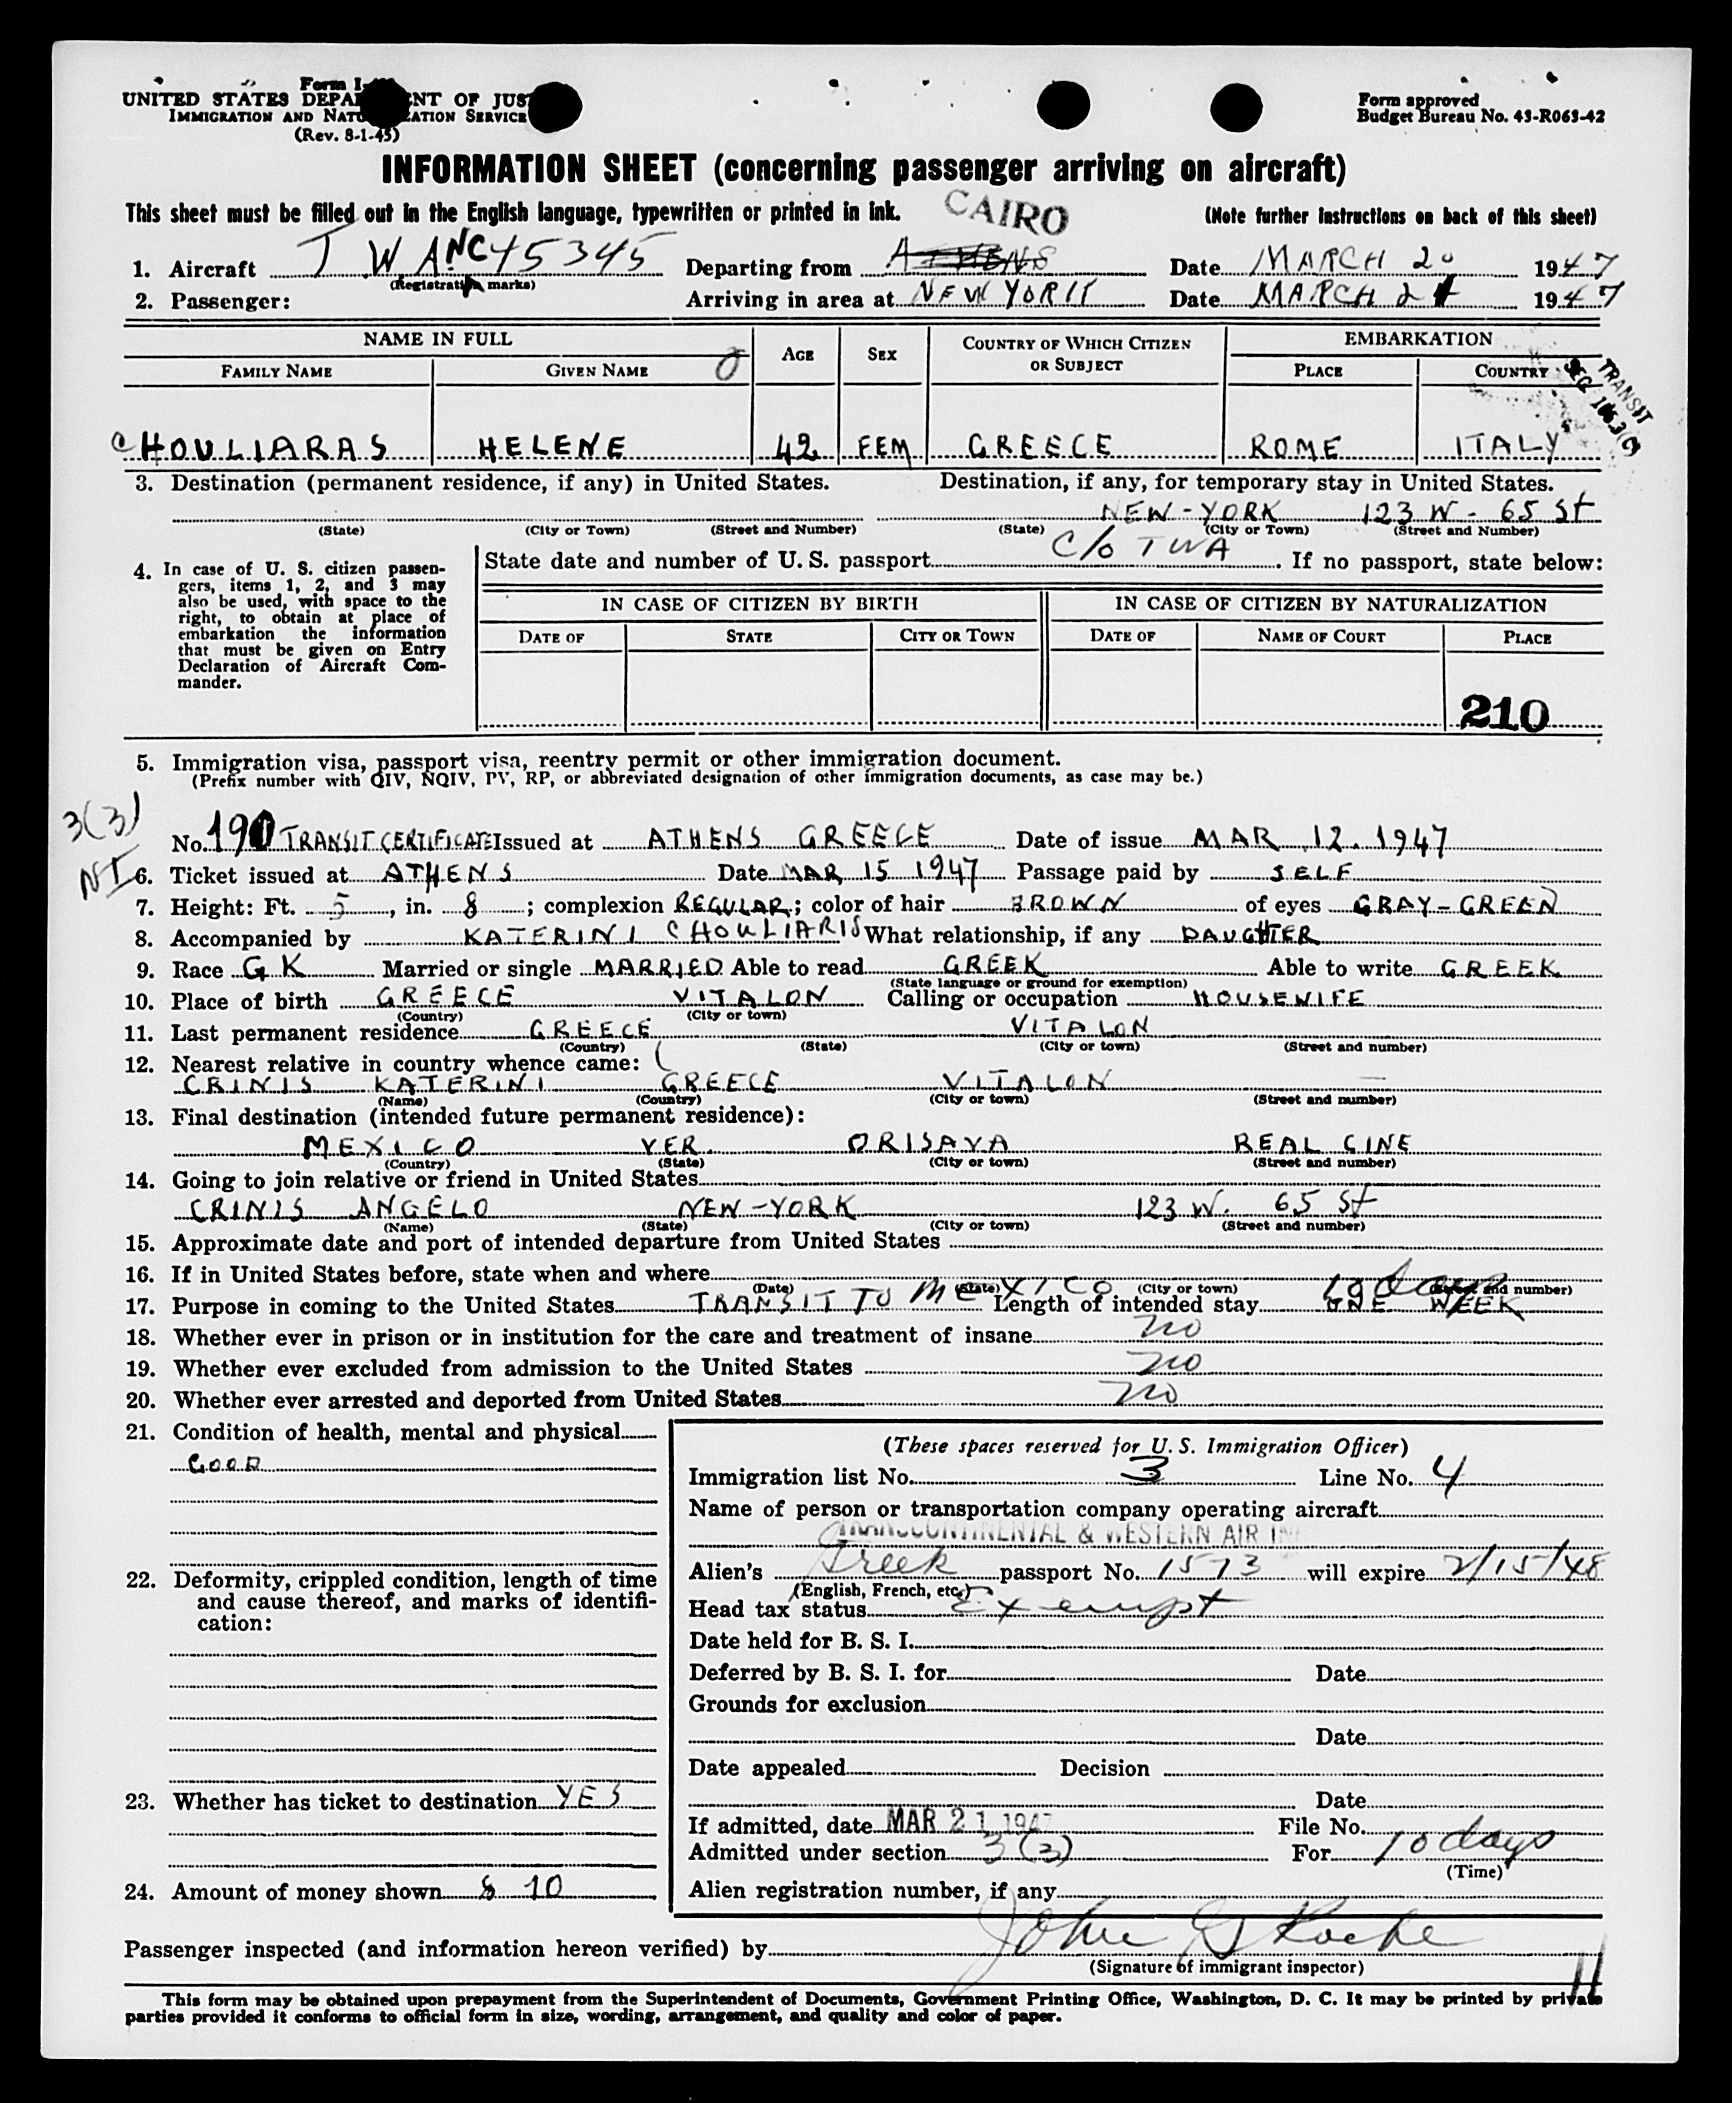 Form I-
UNITED STATES DEPA NT OF JUS
IMMIGRATION AND NATU ZATION SERVICE
(Rev. 8-1-45)
Form approved
Budget Bureau No. 43-R063-42
INFORMATION SHEET (concerning passenger arriving on aircraft)
This sheet must be filled out in the English language, typewritten or printed in ink. CAIRO (Note further instructions on back of this sheet)
1. Aircraft T W A NC 45345 Departing from ATHENS Date MARCH 20 1947
(Registration marks)
2. Passenger: Arriving in area at NEW YORK Date MARCH 21 1947
NAME IN FULL AGE SEX COUNTRY OF WHICH CITIZEN OR SUBJECT EMBARKATION
FAMILY NAME GIVEN NAME PLACE COUNTRY
TRANSIT
SEC
CHOULIARAS HELENE 42 FEM GREECE ROME ITALY
3. Destination (permanent residence, if any) in United States. Destination, if any, for temporary stay in United States.
NEW-YORK 123 W- 65 St
(State) (City or Town) (Street and Number) (State) (City or Town) (Street and Number)
C/o TWA
4. In case of U. S. citizen passengers, items 1, 2, and 3 may also be used, with space to the right, to obtain at place of embarkation the information that must be given on Entry Declaration of Aircraft Commander.
State date and number of U. S. passport . If no passport, state below:
IN CASE OF CITIZEN BY BIRTH IN CASE OF CITIZEN BY NATURALIZATION
DATE OF STATE CITY OR TOWN DATE OF NAME OF COURT PLACE
210
5. Immigration visa, passport visa, reentry permit or other immigration document.
(Prefix number with QIV, NQIV, PV, RP, or abbreviated designation of other immigration documents, as case may be.)
3(3)
No. 190 TRANSIT CERTIFICATE Issued at ATHENS GREECE Date of issue MAR 12. 1947
NI
6. Ticket issued at ATHENS Date MAR 15 1947 Passage paid by SELF
7. Height: Ft. 5, in. 8; complexion REGULAR; color of hair BROWN of eyes GRAY-GREEN
8. Accompanied by KATERINI CHOULIARIS What relationship, if any DAUGHTER
9. Race GK Married or single MARRIED Able to read GREEK Able to write GREEK
(State language or ground for exemption)
10. Place of birth GREECE VITALON Calling or occupation HOUSEWIFE
(Country) (City or town)
11. Last permanent residence GREECE VITALON
(Country) (State) (City or town) (Street and number)
12. Nearest relative in country whence came:
CRINIS KATERINI GREECE VITALON —
(Name) (Country) (City or town) (Street and number)
13. Final destination (intended future permanent residence):
MEXICO VER. ORISAVA REAL CINE
(Country) (State) (City or town) (Street and number)
14. Going to join relative or friend in United States
CRINIS ANGELO NEW-YORK 123 W. 65 St
(Name) (State) (City or town) (Street and number)
15. Approximate date and port of intended departure from United States
16. If in United States before, state when and where
(Date) (State) (City or town) (Street and number)
17. Purpose in coming to the United States TRANSIT TO MEXICO Length of intended stay ONE WEEK 10 days
18. Whether ever in prison or in institution for the care and treatment of insane no
19. Whether ever excluded from admission to the United States no
20. Whether ever arrested and deported from United States no
21. Condition of health, mental and physical
GOOD
22. Deformity, crippled condition, length of time
and cause thereof, and marks of identification:
23. Whether has ticket to destination YES
24. Amount of money shown $ 10
(These spaces reserved for U. S. Immigration Officer)
Immigration list No. 3 Line No. 4
Name of person or transportation company operating aircraft
TRANSCONTINENTAL & WESTERN AIR IN
Alien's Greek passport No. 1573 will expire 2/15/48
(English, French, etc.)
Head tax status Exempt
Date held for B. S. I.
Deferred by B. S. I. for Date
Grounds for exclusion
Date
Date appealed Decision
Date
If admitted, date MAR 21 1947 File No.
Admitted under section 3(3) For 10 days
(Time)
Alien registration number, if any
Passenger inspected (and information hereon verified) by John G Roche
(Signature of immigrant inspector)
This form may be obtained upon prepayment from the Superintendent of Documents, Government Printing Office, Washington, D. C. It may be printed by private
parties provided it conforms to official form in size, wording, arrangement, and quality and color of paper.